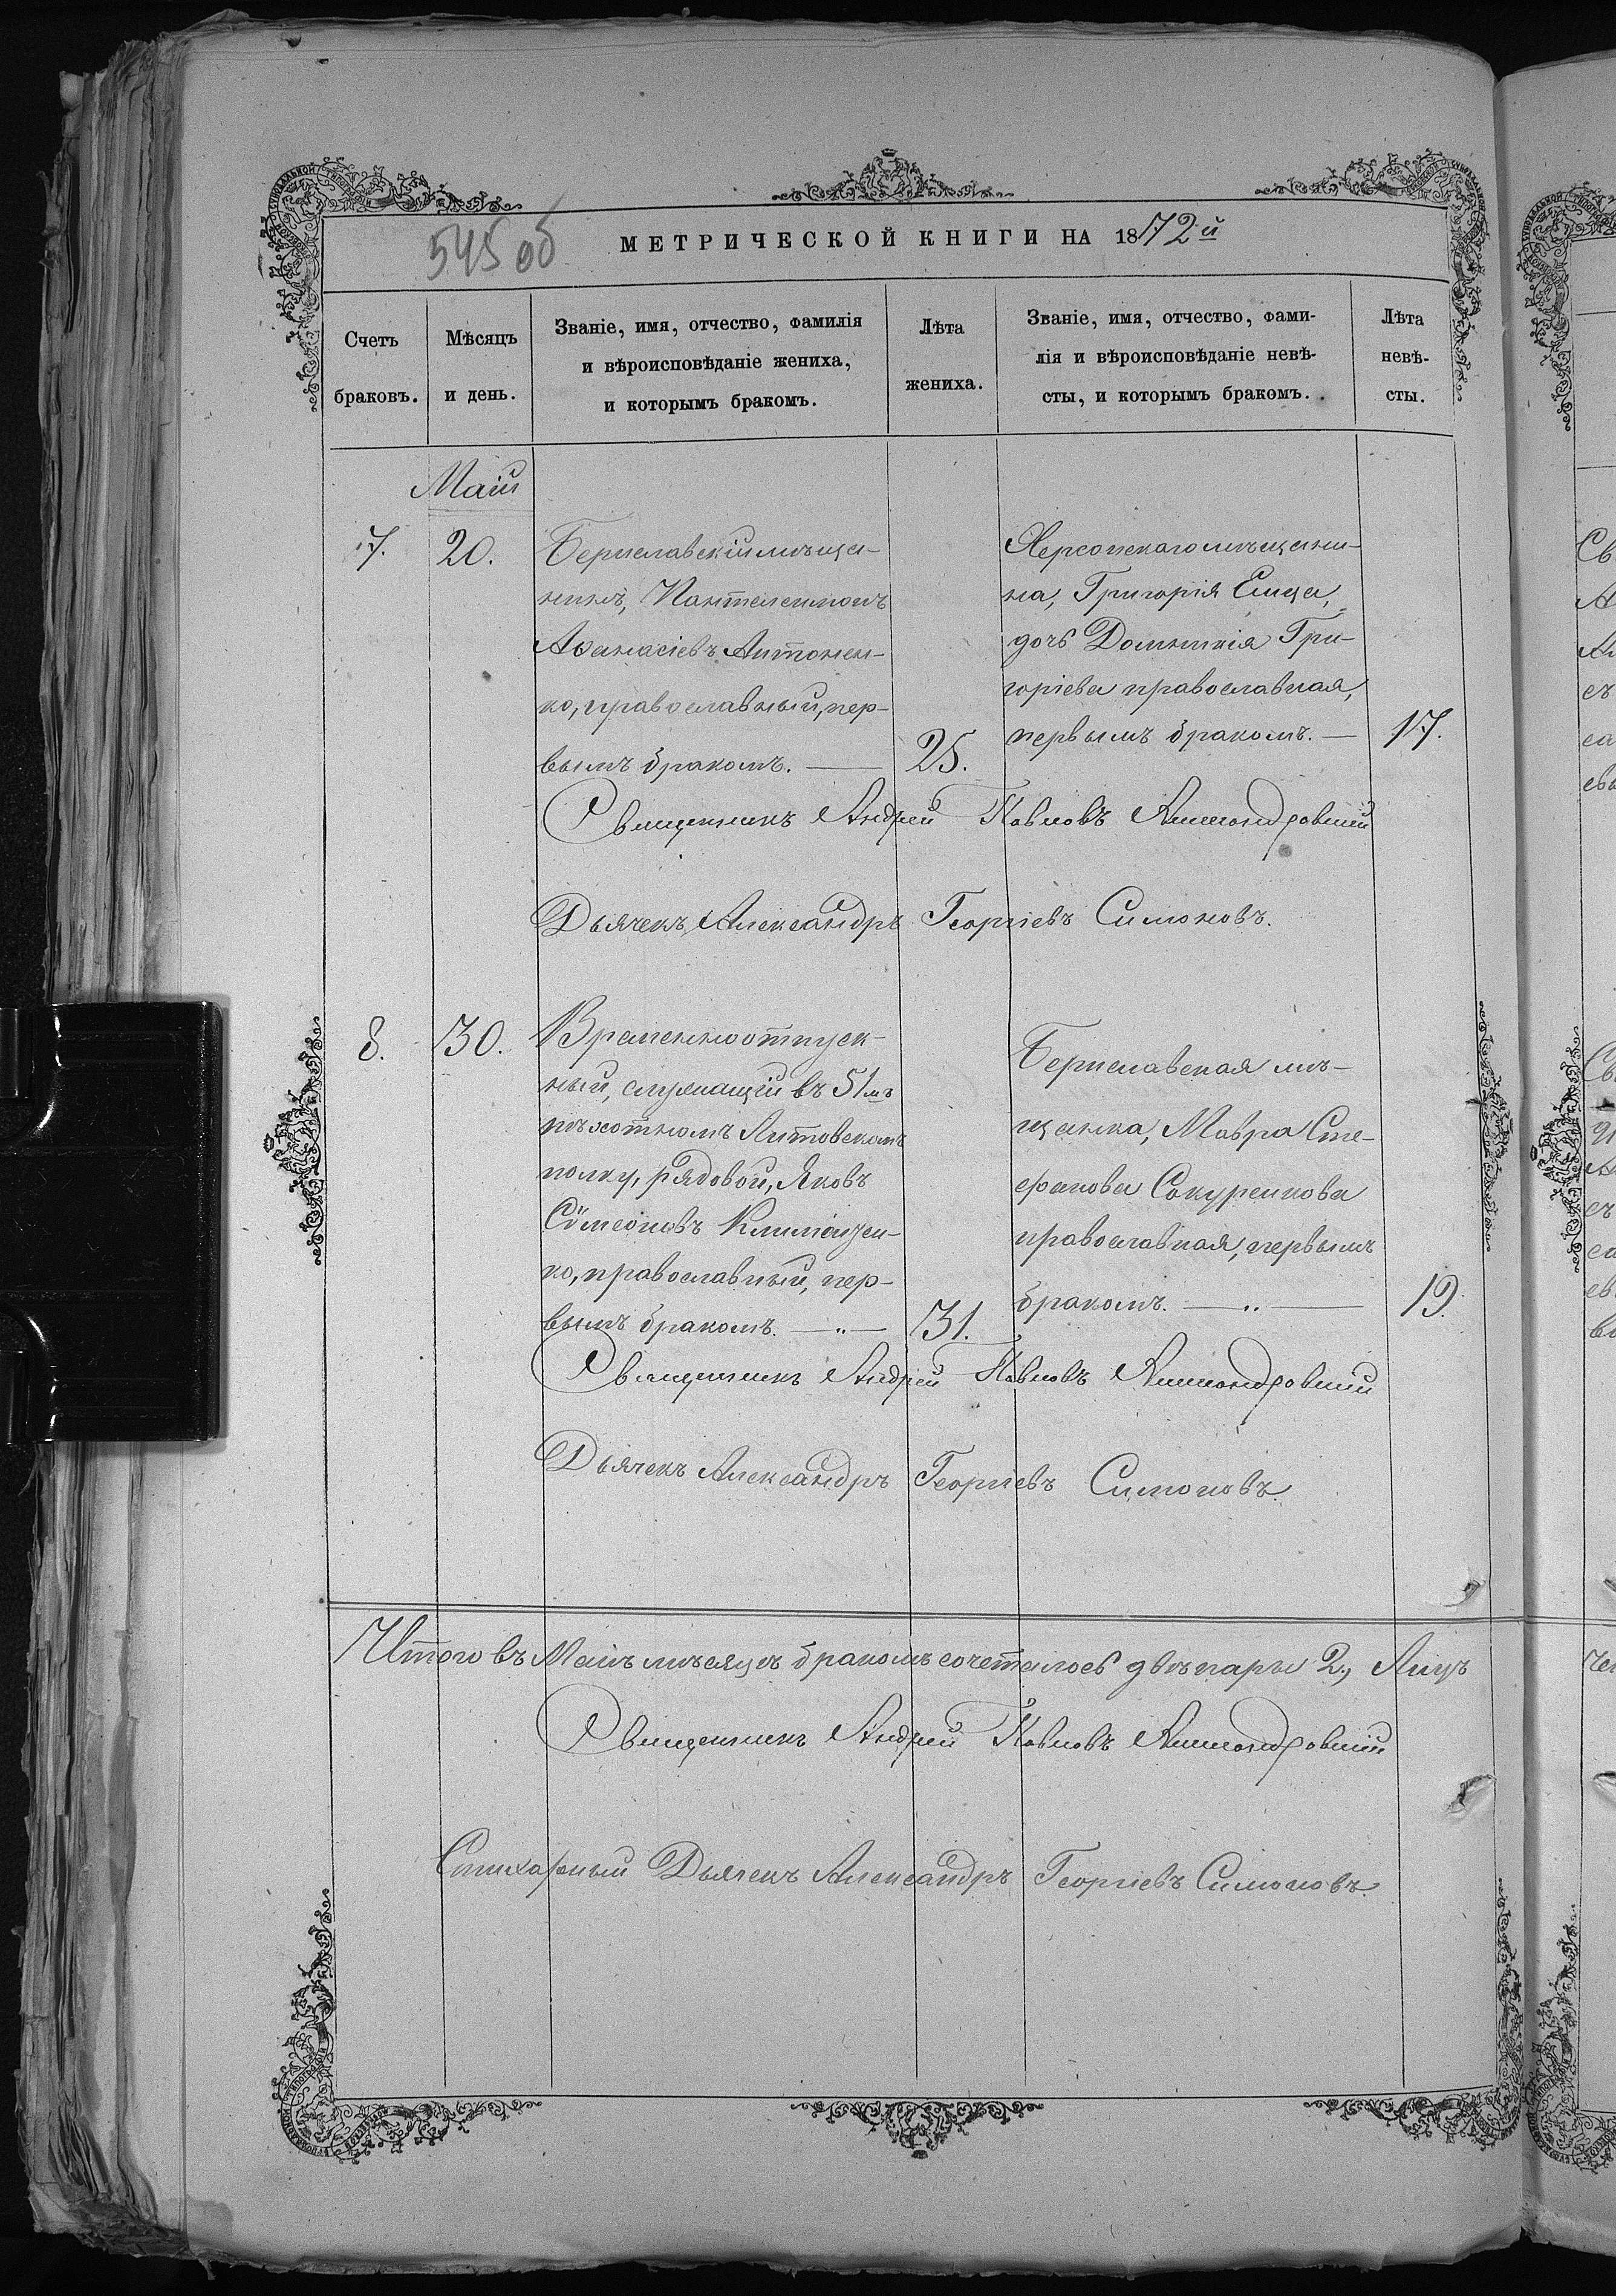 545 об
МЕТРИЧЕСКОЙ КНИГИ НА 1872й
Счетъ
браковъ.
Мѣсяцъ
и день.
Званіе, имя, отчество, фамилія
и вѣроисповѣданіе жениха,
и которымъ бракомъ.
Лѣта
жениха.
Званіе, имя, отчество, фами-
лія и вѣроисповѣданіе невѣ-
сты, и которымъ бракомъ.
Лѣта
невѣ-
сты.
Маій
7.
20.
Бериславскій мѣща-
нинъ, Пантелеимонъ
Аѳанасіевъ Антонен-
ко, православный, пер-
вымъ бракомъ. —
25.
Херсонскаго мѣщани-
на, Григорія
дочь Домникія Гри-
горіева православная,
первымъ бракомъ. —
17.
Священникъ Андрей Павловъ
Дьячекъ Александръ Георгіевъ Симоновъ.
8.
30.
Временноотпуск-
ный, служащій въ 51мъ
пѣхотномъ Литовскомъ
полку, рядовой, Яковъ
Сѵмеоновъ
ко, православный, пер-
вымъ бракомъ. — „ —
31.
Бериславская мѣ-
щанка, Мавра Сте-
фанова Сакуренкова
православная, первымъ
бракомъ. — „ —
19.
Священникъ Андрей Павловъ
Дьячекъ Александръ Георгіевъ Симоновъ.
Итого въ Маіѣ мѣсяцѣ бракомъ сочеталось двѣ пары 2,
Священникъ Андрей Павловъ
Стихарный Дьячекъ Александръ Георгіевъ Симоновъ.